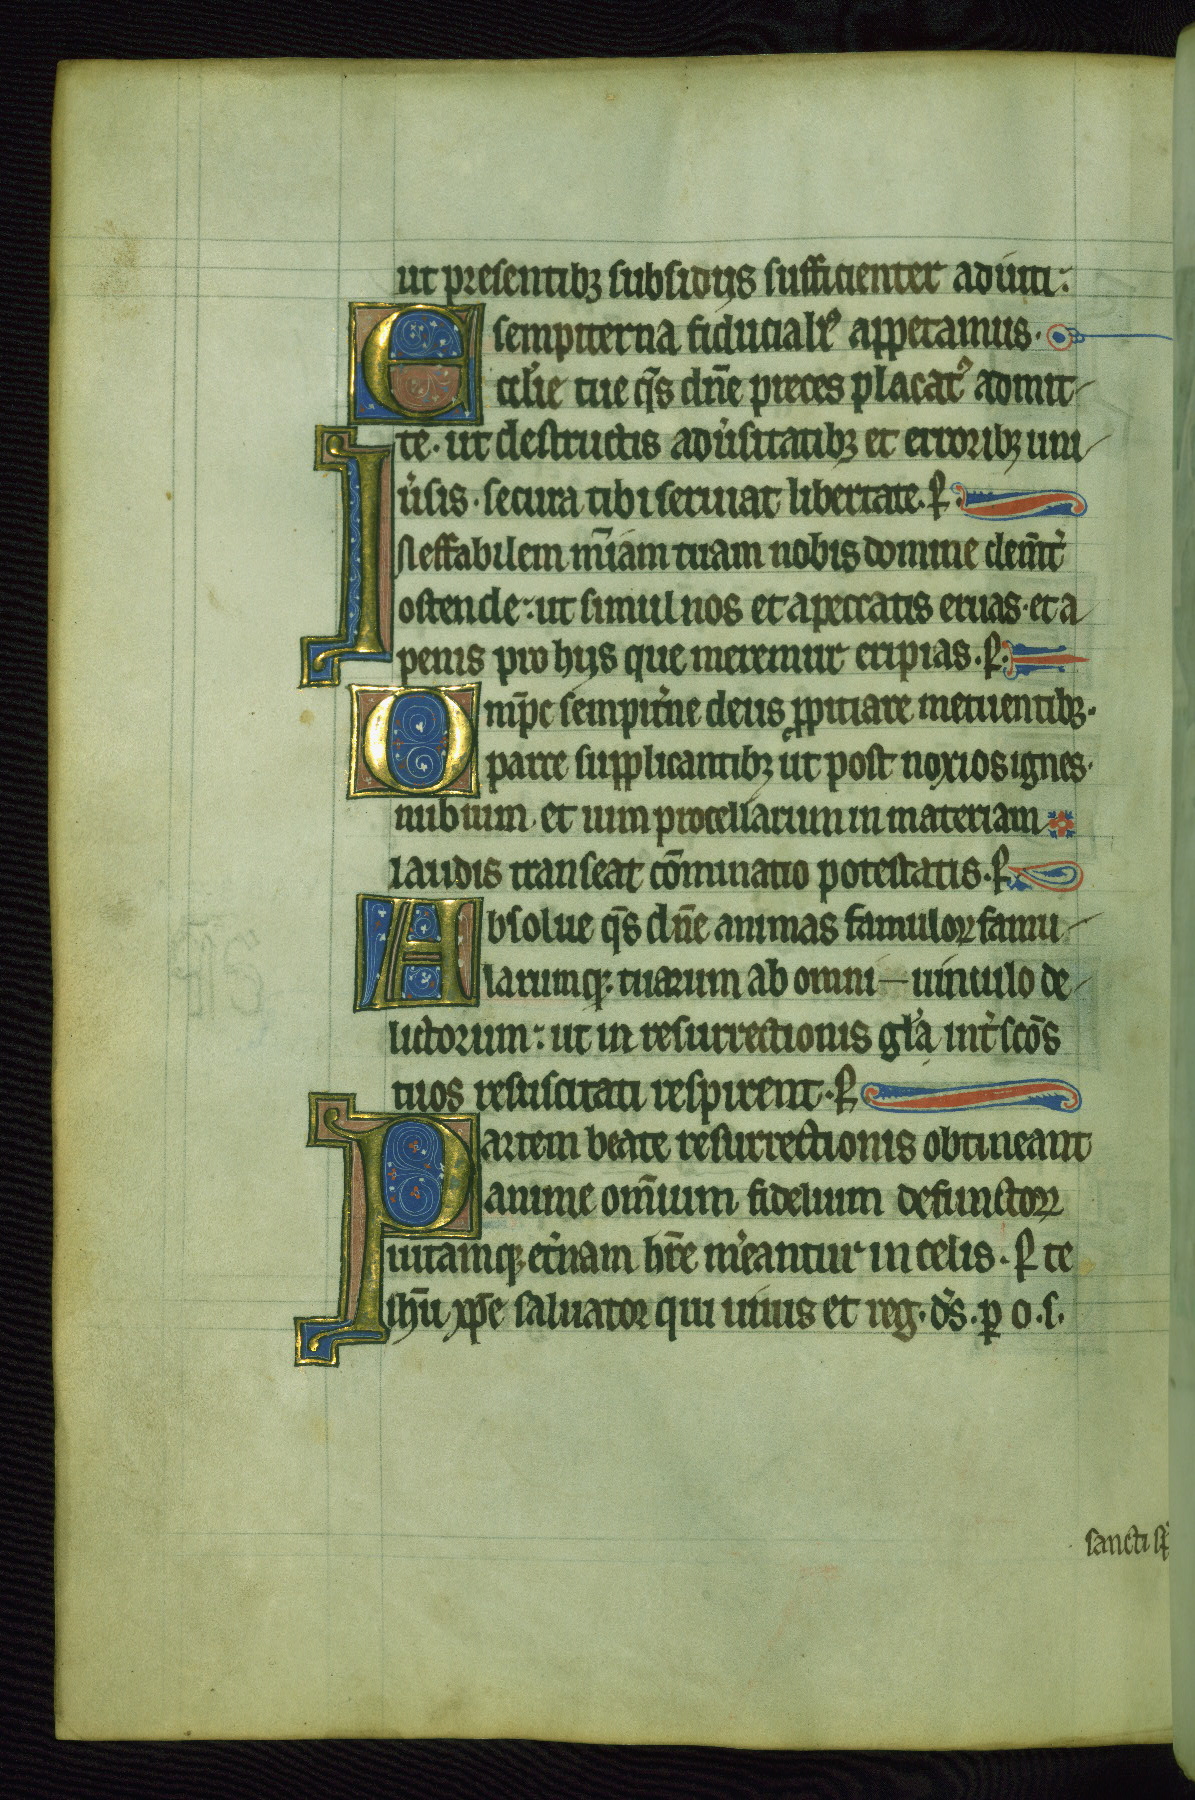 ut presentibꝫ subsidijs sufficienter adiuti:
sempiterna fiducialiꝰ appetamus.
E cclie tue q̄s dn̄e preces placatꝰ admit
te. ut destructis adūsitatibꝫ et erroribꝫ uni
ūsis. secura tibi seruiat libertate. P.
I Neffabilem mīam tuam nobis domine clemt̄
ostende: ut simul nos et a peccatis eruas. et a
penis pro hijs que meremur eripias. P.
O mp̄c sempitne deus ꝓpitiare metuentibꝫ.
parce supplicantibꝫ ut post noxios ignes.
nubium. et uim procellarum in materiam
laudis transeat cōminatio potestatis. P.
A bsolue q̄s dn̄e animas famuloꝝ famu
larumqꝫ tuarum ab omni uinculo de
lictorum: ut in resurrectionis gla int scōs
tuos resuscitati respirent. P.
P artem beate resurrectionis obtineant
anime om̄ium fidelium defunctoꝝ
uitamqꝫ etnam hr̄e meantur in celis. P te
ihū xp̄e saluator qui uiuis et reg. ds. ꝑ o. s.
sancti sp̄